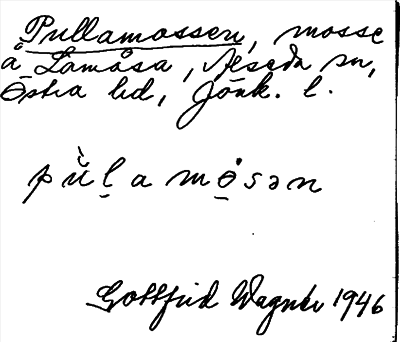 Pullamossen, mosse
å Lamåsa, Näseda sn,
Östra hd, Jönk. l.
pu̇̀l̠a mo̠̊sən
Gottfrid Wagner 1946